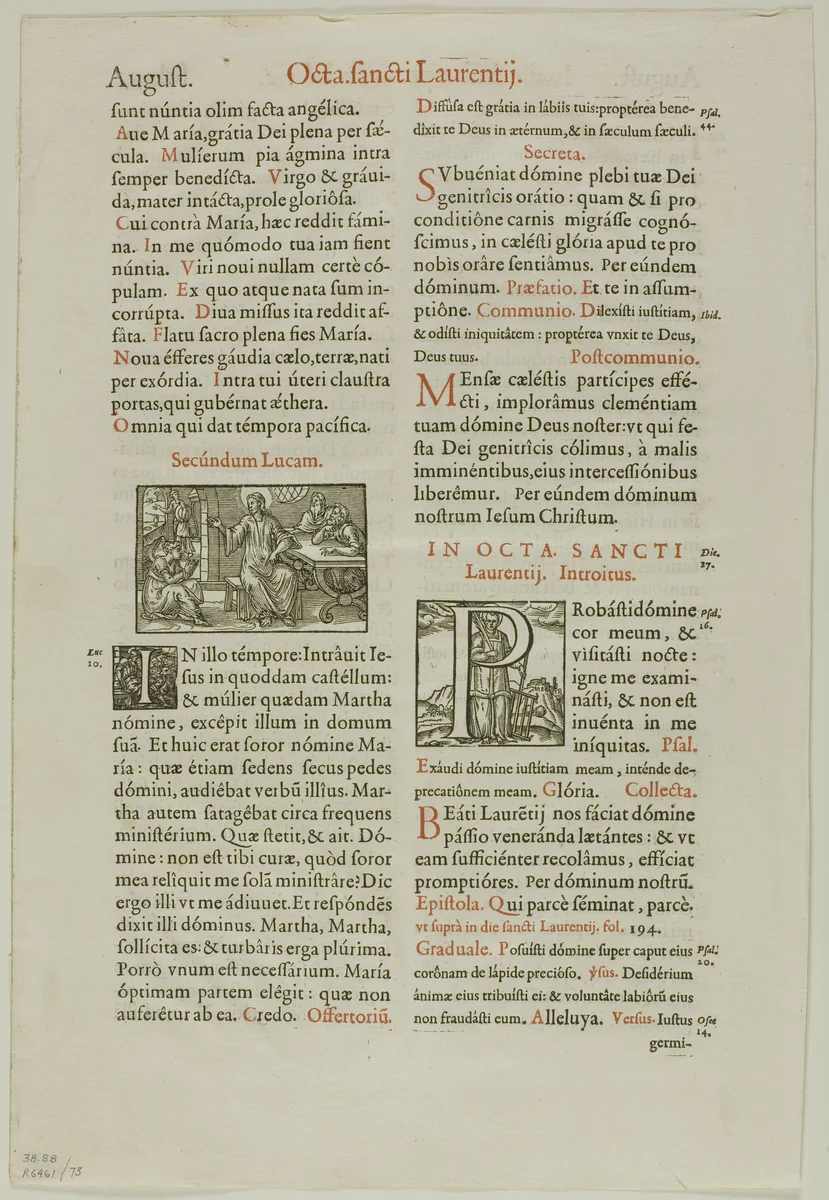 Auguſt.
Octa.ſancti Laurentij.
ſunt núntia olim facta angélica.
Aue María,grátia Dei plena per ſǽ-
cula. Mulíerum pia ágmina intra
ſemper benedícta. Virgo & gráui-
da,mater intácta,prole glorióſa.
Cui contrà María, hæc reddit fámi-
na. In me quómodo tua iam fient
núntia. Viri noui nullam certè có-
pulam. Ex quo atque nata ſum in-
corrúpta. Diua miſſus ita reddit af-
fâta. Flatu ſacro plena fies María.
Noua éfferes gáudia cælo,terræ,nati
per exórdia. Intra tui úteri clauſtra
portas,qui gubérnat ǽthera.
Omnia qui dat témpora pacífica.
Secúndum Lucam.
Luc
10.
IN illo témpore:Intrâuit Ie-
ſus in quoddam caſtéllum:
& múlier quædam Martha
nómine, excêpit illum in domum
ſuã. Et huic erat ſoror nómine Ma-
ría: quæ étiam ſedens ſecus pedes
dómini, audiêbat verbũ illîus. Mar-
tha autem ſatagêbat circa frequens
miniſtérium. Quæ ſtetit,& ait. Dó-
mine: non eſt tibi curæ, quòd ſoror
mea relîquit me ſolã miniſtrâre? Dic
ergo illi vt me ádiuuet.Et reſpóndẽs
dixit illi dóminus. Martha, Martha,
ſollícita es:& turbâris erga plúrima.
Porrò vnum eſt neceſſárium. María
óptimam partem elêgit: quæ non
auferêtur ab ea. Credo. Offertoriũ.
Diffûſa eſt grátia in lábiis tuis:proptérea bene- Pſal.
díxit te Deus in ætérnum,& in ſæculum ſæculi. 44.
Secreta.
SVbuéniat dómine plebi tuæ Dei
genitrîcis orátio: quam & ſi pro
conditiône carnis migráſſe cognó-
ſcimus, in cæléſti glória apud te pro
nobìs orâre ſentiâmus. Per eúndem
dóminum. Præfatio. Et te in aſſum-
ptiône. Communio. Dilexíſti iuſtítiam, Ibid.
& odíſti iniquitâtem: proptérea vnxit te Deus,
Deus tuus. Poſtcommunio.
MEnſæ cæléſtis partícipes effé-
cti, implorâmus cleméntiam
tuam dómine Deus noſter:vt qui fe-
ſta Dei genitrîcis cólimus, à malis
imminéntibus,eius interceſſiónibus
liberêmur. Per eúndem dóminum
noſtrum Ieſum Chriſtum.
IN OCTA. SANCTI Die.
Laurentij. Introitus. 17.
PRobáſti dómine Pſal.
cor meum, & 16.
viſitáſti nocte:
igne me exami-
náſti, & non eſt
inuénta in me
iníquitas. Pſal.
Exáudi dómine iuſtítiam meam, inténde de-
precatiônem meam. Glória. Collecta.
BEáti Laurẽtij nos fáciat dómine
páſſio veneránda lætántes: & vt
eam ſufficiénter recolâmus, effíciat
promptióres. Per dóminum noſtrũ.
Epiſtola. Qui parcè ſéminat, parcè.
vt ſuprà in die ſancti Laurentij. fol. 194.
Graduale. Poſuíſti dómine ſuper caput eius Pſal.
corônam de lápide precióſo. ℣ſus. Deſidérium 20.
ánimæ eius tribuíſti ei: & voluntâte labiôrũ eius
non fraudáſti eum. Alleluya. Verſus. Iuſtus Oſee
14.
germi-
38.88
R6461/73